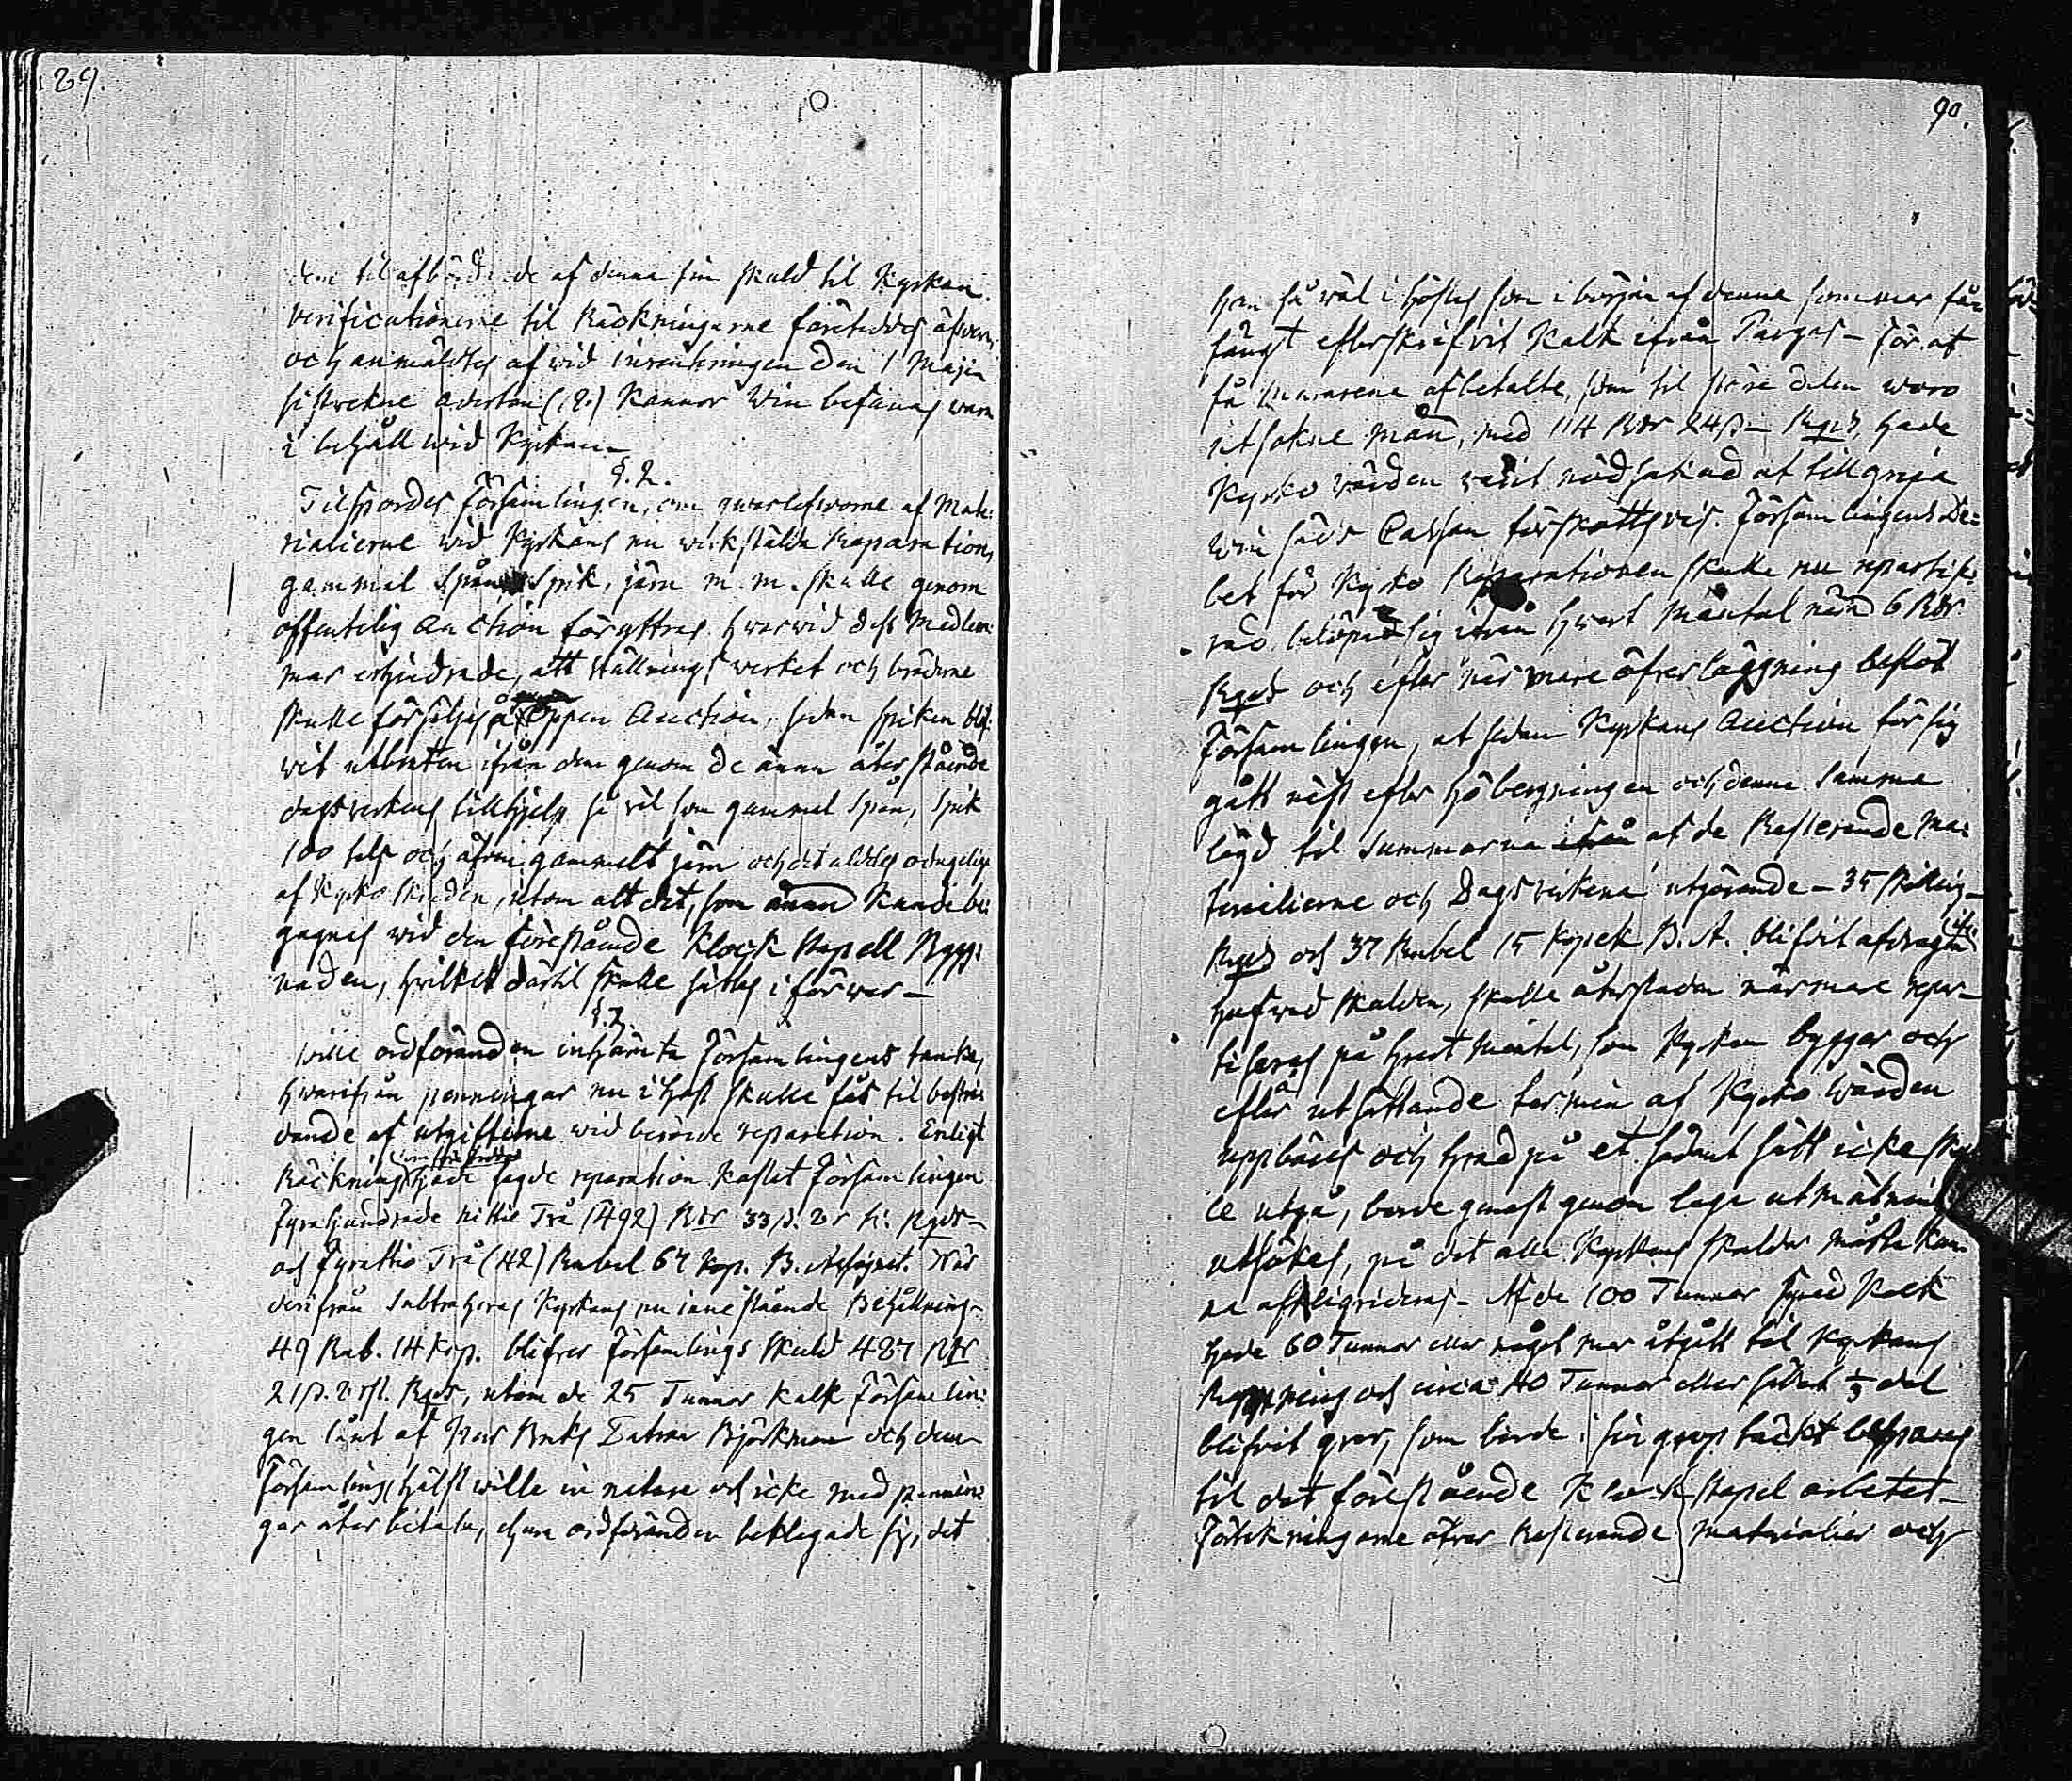 89.
af denna sin skuld til Kyrkan.
Verificationerne til Räckningarne företeddes äfven,
och anmältes af wid inräkningen den 1 Maji
sistvekne aderton (18.) Kannor Win befanns vara
i behåll wid Kyrkan
§. 2.
Tilspordes Församlingen, om qwarlefworne af Mate:
rialierne wid Kyrkans nu wirkstälda Reparation,
gammal Spån Spik, järn m. m. skulle genom
offentelig Auction föryttras hwarwid dess Medlem:
mar erhindrade, att ställningswerket och bräderne
skulle försäljas å öppen Auction, sedan spiken blif:
vit utbruten ifrån dem genom de ännu återstående
dagsverkens tillhjelp så väl som gammal Spån, Spik
100 tals och äfven gammalt järn och det aldeles odugelige
af Kyrko skruden, utom alt det, som ännu Kunde be:
gagnas wid den förestående Klockstapell Bygg:
naden, hvilket därtil skulle sättas i förwar —
§. 3.
Wille ordföranden inhämta Församlingens tanke,
hwarifrån penningar nu i hast skulle fås til bestri:
dande af utgifterne wid berörde reparation. Enligt
Räckning, som företeddes hade sagde reparation kostat Församlingen
Fyrahundrade Nittio Två (492) Rdr 33 s. 2 r st. Rgds —
och Fyratio Två (42) Rubel 64 kop. B. Assignat. När
derifrån Subtraheras Kyrkans nu innestående Behållning
49 Rub. 14 Kop. blifver Församlings skuld 487 Rdr
21 s. 2 rst. Rgds, utom de 25 Tunnor Kalk Församlin:
gen lånt af Herr Bruks Patron Björkman och dem
Församling hälst wille in natura och icke med pennin:
gar återbetala, ehuru ordföranden beklagade sig, det
90.
han så wäl i höstas som i början af denne sommar får:
fängt efterskrifvit Kalk ifrån Pargas — För at
få Murarena afbetalte, som til större delen woro
utsokne män, med 114 Rdr 24 s — Rgds, hade
Kyrko värden varit nödsakad at tillgripa
Win säds Cassan förskottsvis. Församlingens De:
bet för Kyrko Reparationen skulle nu repartise:
rad belöpa sig hwart Mantal nära 6 Rdr
Rgds och efter närmare öfverläggning beslöt
Församlingen, at sedan Kyrkans Auction för sig
gått näst efter höbergningen och denna Summa
lagd til Summorna af de Resterande Ma:
terialierne och Dagsvirkena utgörande — 35 skilling —
Rgds och 37 Rubel 15 Kopek B. A. blifvit afdragen
hufwud skulden, skulle återstoden närmare repar —
tiseras på hvart Mantal, som Kyrkan bygger och
efter utsättande termin af Kyrko Wärden
uppbäras och hvad på et sådant sätt icke skul
le utgå, borde genast genom laga utmätning
utsökes, på det alla Kyrkans skulder måtte kun
na afliqvideras — Af de 100 Tunnor Kalk
hade 60 Tunnor eller något mer åtgått til Kyrkans
Rappning och circa 40 Tunnor eller sådan 1/3 del
blifvit qvar, som borde i sin grop täckt besparas
til det förestående Klockstapel arbetet —
Förtekningarne öfver Resterande Materialier och